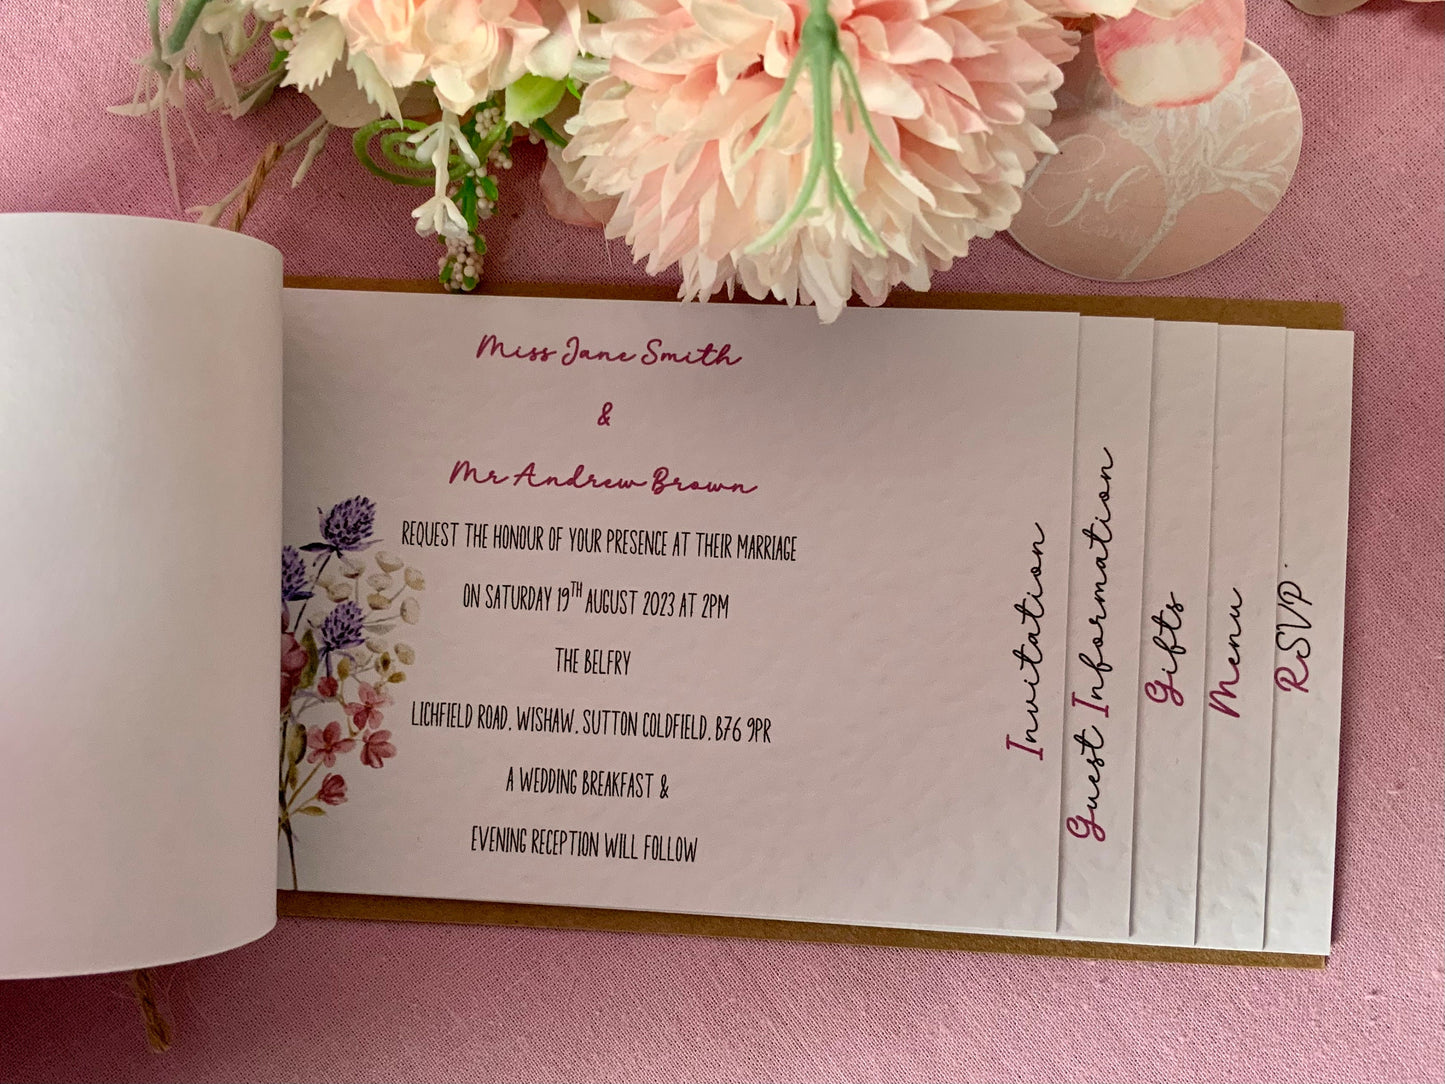 Miss Jane Smith
&
Mr Andrew Brown
REQUEST THE HONOUR OF YOUR PRESENCE AT THEIR MARRIAGE
ON SATURDAY 19TH AUGUST 2023 AT 2PM
THE BELFRY
LICHFIELD ROAD, WISHAW, SUTTON COLDFIELD, B76 9PR
A WEDDING BREAKFAST &
EVENING RECEPTION WILL FOLLOW
Invitation
Guest Information
Gifts
Menu
RSVP